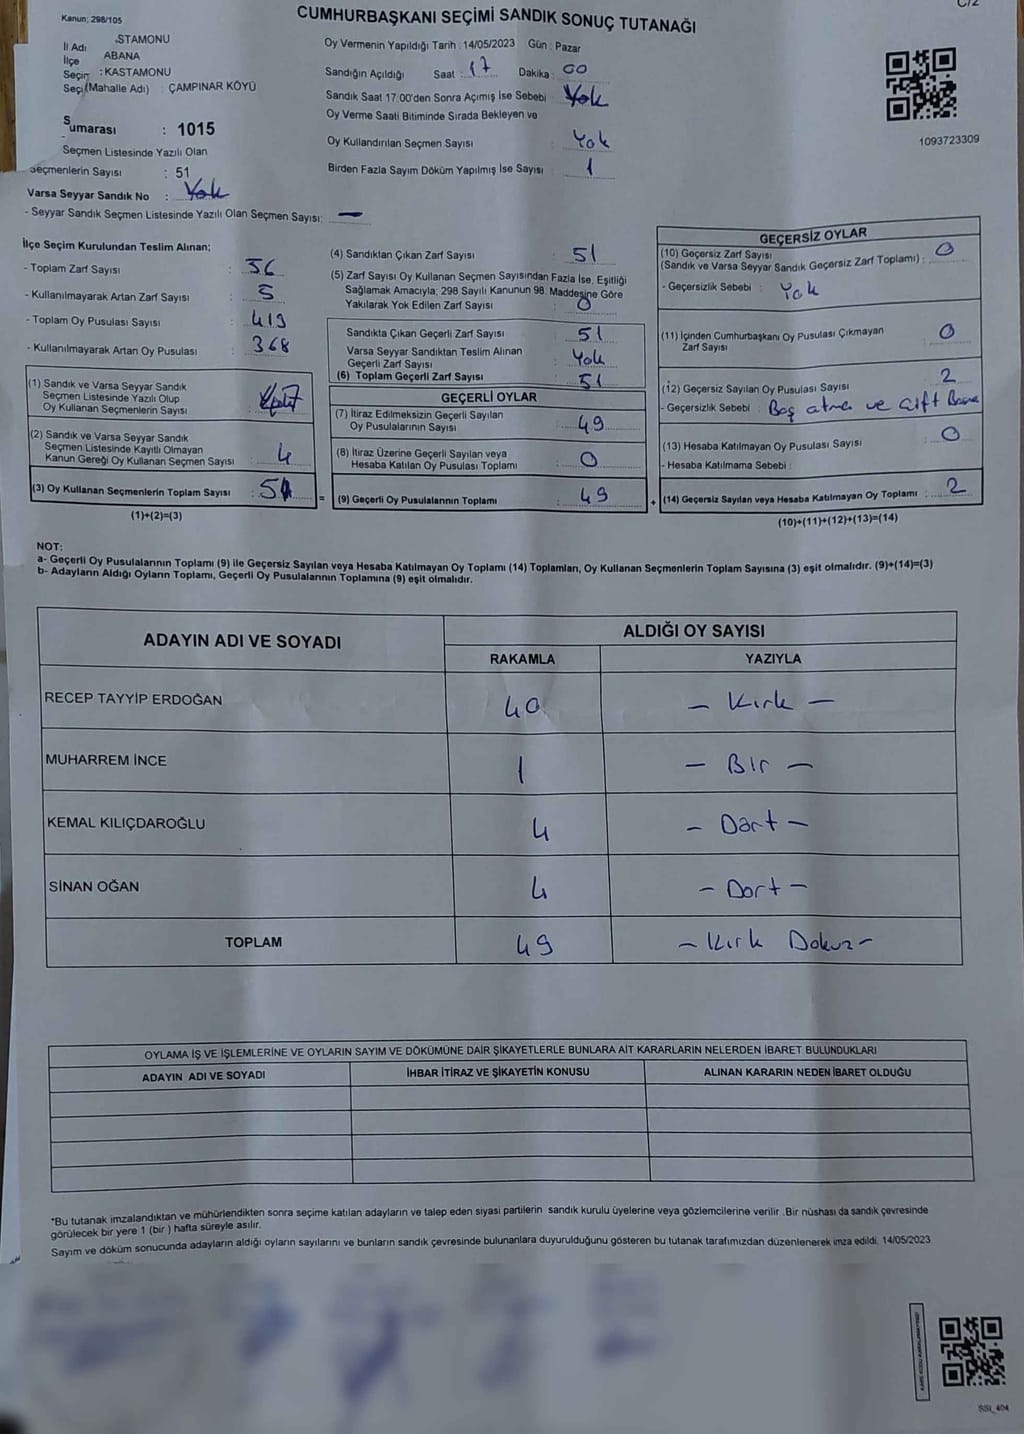 Kanun; 298/105
CUMHURBAŞKANI SEÇİMİ SANDIK SONUÇ TUTANAĞI
C/2
İl Adı STAMONU
İlçe ABANA
Seçim : KASTAMONU
Seçi (Mahalle Adı) : ÇAMPINAR KÖYÜ
S
umarası : 1015
Seçmen Listesinde Yazılı Olan
Seçmenlerin Sayısı : 51
Varsa Seyyar Sandık No : Yok
- Seyyar Sandık Seçmen Listesinde Yazılı Olan Seçmen Sayısı: —
Oy Vermenin Yapıldığı Tarih : 14/05/2023 Gün : Pazar
Sandığın Açıldığı Saat : 17 Dakika : 00
Sandık Saat 17:00'den Sonra Açımış İse Sebebi : Yok
Oy Verme Saati Bitiminde Sırada Bekleyen ve
Oy Kullandırılan Seçmen Sayısı : Yok
Birden Fazla Sayım Döküm Yapılmış İse Sayısı : 1
1093723309
İlçe Seçim Kurulundan Teslim Alınan;
- Toplam Zarf Sayısı : 56
- Kullanılmayarak Artan Zarf Sayısı : 5
- Toplam Oy Pusulası Sayısı : 419
- Kullanılmayarak Artan Oy Pusulası : 368
(1) Sandık ve Varsa Seyyar Sandık
Seçmen Listesinde Yazılı Olup
Oy Kullanan Seçmenlerin Sayısı : 47
(2) Sandık ve Varsa Seyyar Sandık
Seçmen Listesinde Kayıtlı Olmayan
Kanun Gereği Oy Kullanan Seçmen Sayısı : 4
(3) Oy Kullanan Seçmenlerin Toplam Sayısı : 51
(1)+(2)=(3)
(4) Sandıktan Çıkan Zarf Sayısı : 51
(5) Zarf Sayısı Oy Kullanan Seçmen Sayısından Fazla İse, Eşitliği
Sağlamak Amacıyla; 298 Sayılı Kanunun 98. Maddesine Göre
Yakılarak Yok Edilen Zarf Sayısı : 0
Sandıkta Çıkan Geçerli Zarf Sayısı : 51
Varsa Seyyar Sandıktan Teslim Alınan
Geçerli Zarf Sayısı : Yok
(6) Toplam Geçerli Zarf Sayısı : 51
GEÇERLİ OYLAR
(7) İtiraz Edilmeksizin Geçerli Sayılan
Oy Pusulalarının Sayısı : 49
(8) İtiraz Üzerine Geçerli Sayılan veya
Hesaba Katılan Oy Pusulası Toplamı : 0
= (9) Geçerli Oy Pusulalarının Toplamı : 49
GEÇERSİZ OYLAR
(10) Geçersiz Zarf Sayısı
(Sandık ve Varsa Seyyar Sandık Geçersiz Zarf Toplamı) : 0
- Geçersizlik Sebebi : Yok
(11) İçinden Cumhurbaşkanı Oy Pusulası Çıkmayan
Zarf Sayısı : 0
(12) Geçersiz Sayılan Oy Pusulası Sayısı : 2
- Geçersizlik Sebebi : Boş atma ve çift Basma
(13) Hesaba Katılmayan Oy Pusulası Sayısı : 0
- Hesaba Katılmama Sebebi :
+ (14) Geçersiz Sayılan veya Hesaba Katılmayan Oy Toplamı : 2
(10)+(11)+(12)+(13)=(14)
NOT:
a- Geçerli Oy Pusulalarının Toplamı (9) ile Geçersiz Sayılan veya Hesaba Katılmayan Oy Toplamı (14) Toplamları, Oy Kullanan Seçmenlerin Toplam Sayısına (3) eşit olmalıdır. (9)+(14)=(3)
b- Adayların Aldığı Oyların Toplamı, Geçerli Oy Pusulalarının Toplamına (9) eşit olmalıdır.
ADAYIN ADI VE SOYADI
ALDIĞI OY SAYISI
RAKAMLA YAZIYLA
RECEP TAYYİP ERDOĞAN 40 – Kırk –
MUHARREM İNCE 1 – Bir –
KEMAL KILIÇDAROĞLU 4 – Dört –
SİNAN OĞAN 4 – Dört –
TOPLAM 49 – Kırk Dokuz –
OYLAMA İŞ VE İŞLEMLERİNE VE OYLARIN SAYIM VE DÖKÜMÜNE DAİR ŞİKAYETLERLE BUNLARA AİT KARARLARIN NELERDEN İBARET BULUNDUKLARI
ADAYIN ADI VE SOYADI İHBAR İTİRAZ VE ŞİKAYETİN KONUSU ALINAN KARARIN NEDEN İBARET OLDUĞU
*Bu tutanak imzalandıktan ve mühürlendikten sonra seçime katılan adayların ve talep eden siyasi partilerin sandık kurulu üyelerine veya gözlemcilerine verilir. Bir nüshası da sandık çevresinde
görülecek bir yere 1 (bir ) hafta süreyle asılır.
Sayım ve döküm sonucunda adayların aldığı oyların sayılarını ve bunların sandık çevresinde bulunanlara duyurulduğunu gösteren bu tutanak tarafımızdan düzenlenerek imza edildi. 14/05/2023
SSI_404